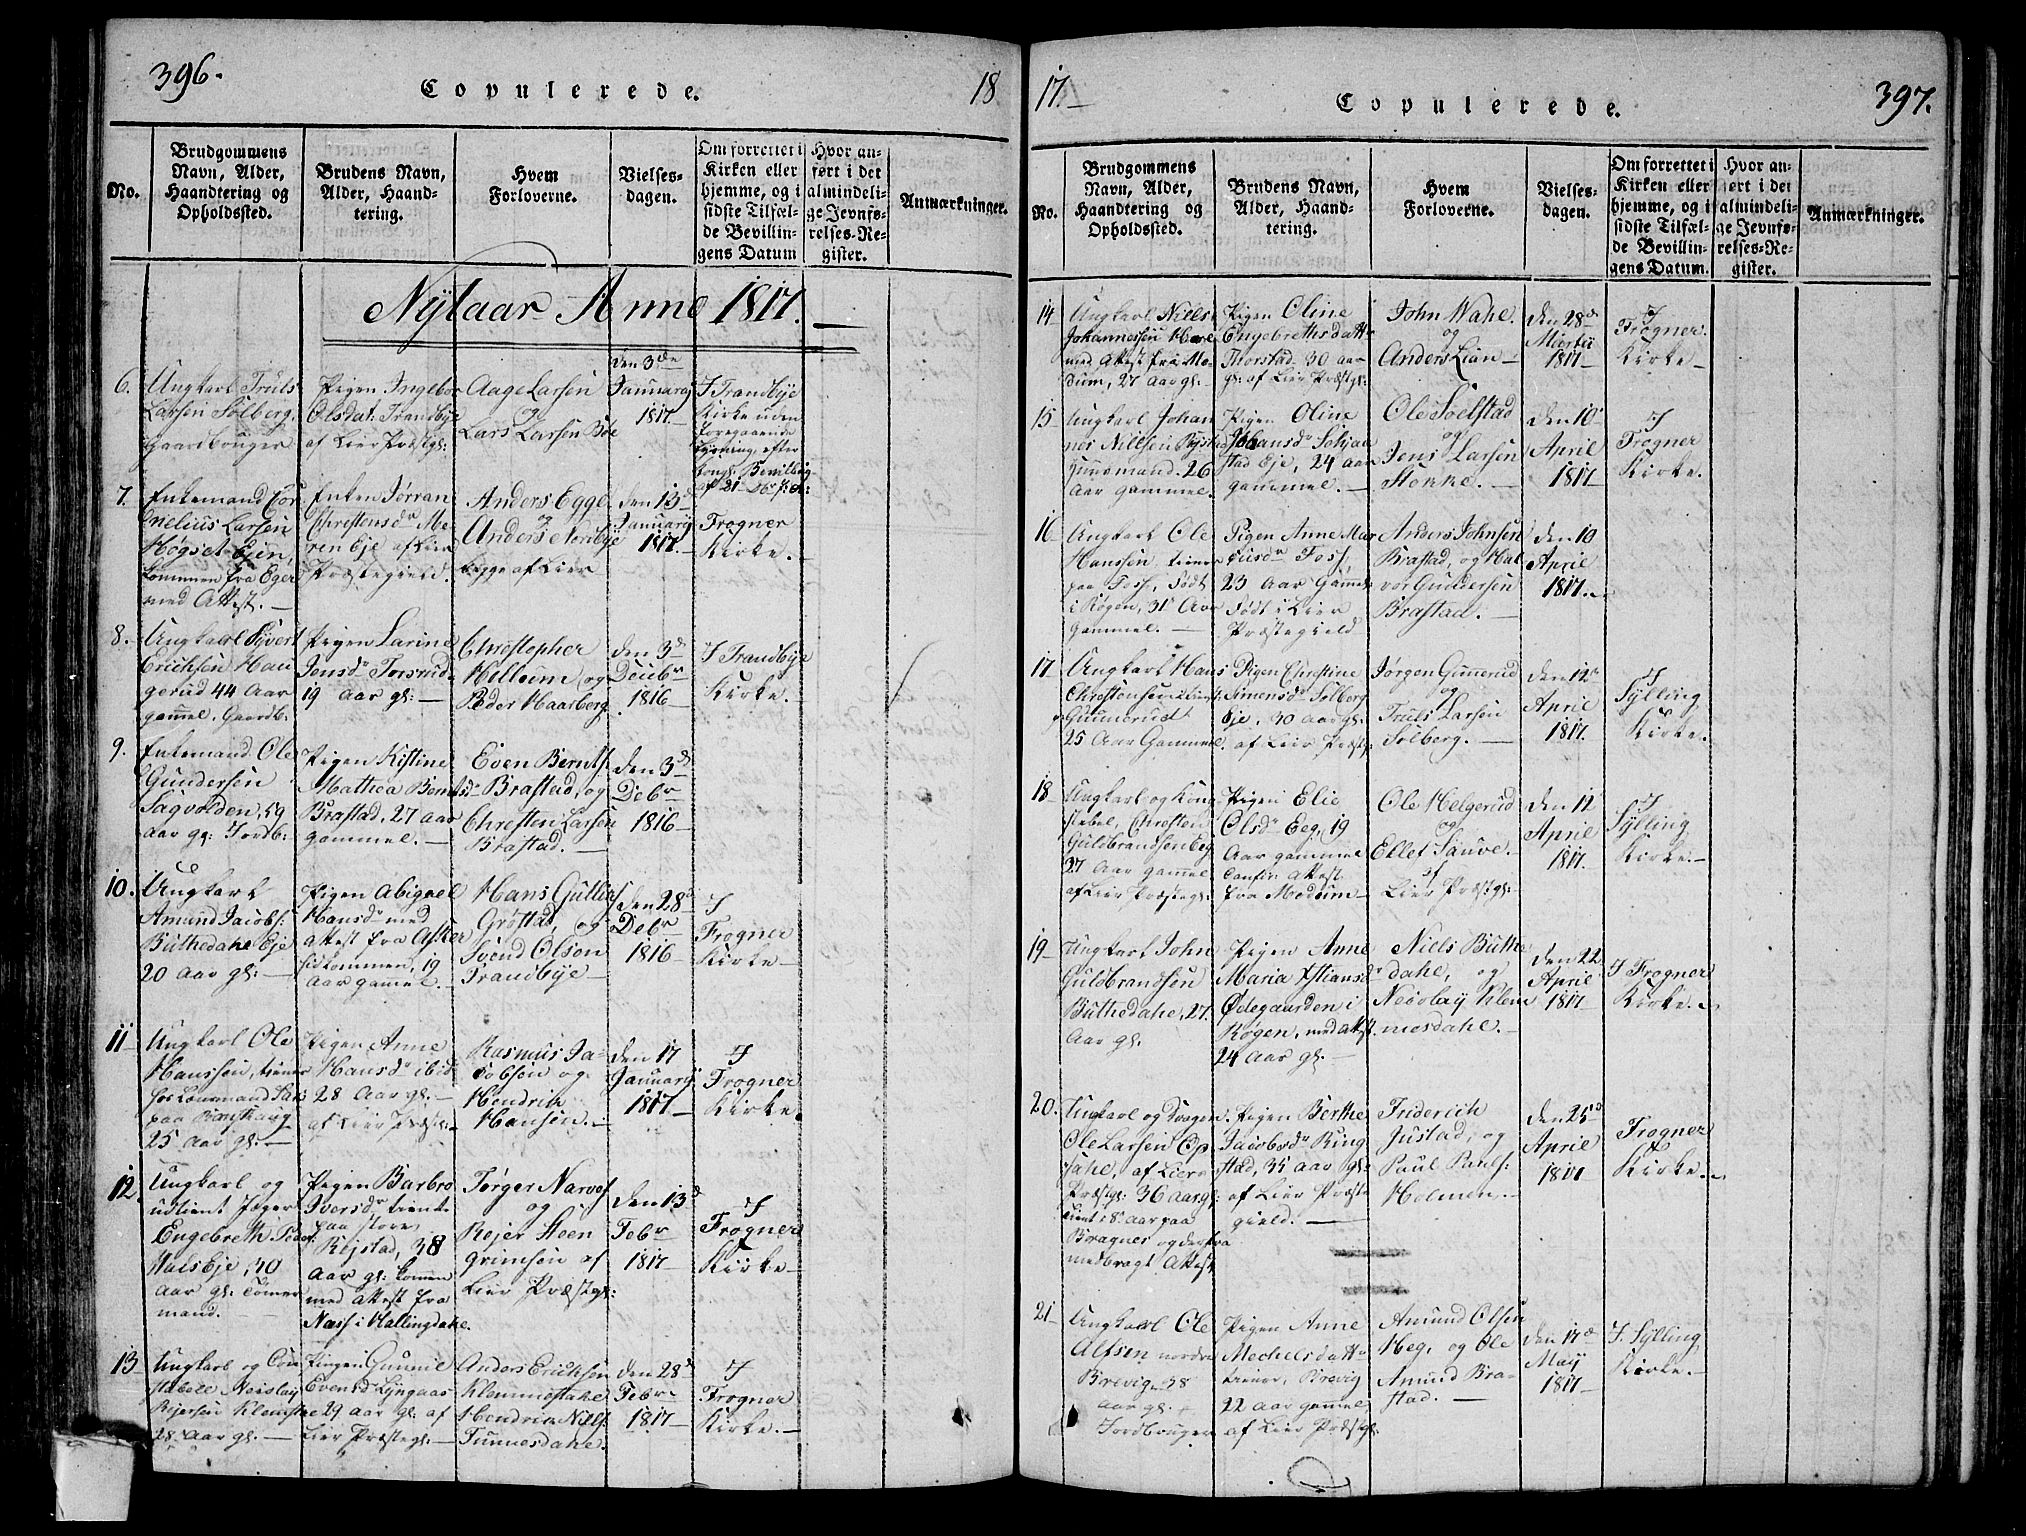 396.
Copulerede.
18
No.
Brudgommens
Navn, Alder,
Haandtering og
Opholdssted.
Brudens Navn,
Alder, Haand-
tering.
Hvem
Forloverne.
Vielses-
dagen.
Om forrettet i
Kirken eller
hjemme, og i
sidste Tilfæl-
de Bevillin-
gens Datum
Hvor an-
ført i det
almindeli-
ge Jevnfø-
relses-Re-
gister.
Anmærkninger.
Nytaar Anno 1817.
6.
Ungkarl Truls
Larsen Solberg
Gaardbruger
Pigen Ingebor
Olsdat. Trandbye
af Lier Præstgl:
Aage Larsen
og
Lars Larsen Bøe
den 3de
Januarij
1817.
I Trandbye
Kirke uden
foregaaende
Lysning, efter
kongl. Bevilling
7.
Enkemand Cor
nelius Larsen
Høgset Eje,
kommen fra Eger
med Attest.
Enken Jørran
Christensdr Me-
ren Eje af Lier
Præstegield.
Anders Egge
og
Anders Nordbye
begge af Lier
den 13de
Januarij
1817.
Frogner
Kirke.
8.
Ungkarl Syvert
Erichsen Hau
gerud 44 Aar
gamel. Gaardb:
Pigen Larine
Jensdr Torsrud
19 aar gl:
Christopher
Hellum og
Peder Haarberg
den 3de
1816
I Trandbye
Kirke.
9.
Enkemand Ole
Gundersen
Sagvolden, 59
aar gl: Jordb:
Pigen Kistine
Mathea Berntsdr
Brastad, 27 aar
gammel.
Even Bernts.
Brastad, og
Christen Larsen
Brastad.
den 3de
Debr
1816
10.
Ungkarl
Amund Jacobs:
Buthedahl Eje
20 aar gl:
Pigen Abigael
Hansdr med
Attest fra Asker
kommen, 19
aar gamel.
Hans Gullies
Grøstad, og
Svend Olsen
Trandbye
den 28de
Debr
1816
I
Frogner
Kirke
11
Ungkarl Ole
Hanssen, tiener
25 aar gl:
Pigen Anne
Hansdr ibid
28 Aar gl:
af Lier Præstgl:
Rasmus Ja-
cobsen og
Hendrik
Hansen.
den 17
Januarij
1817
I
Frogner
Kirke.
12.
Ungkarl og
udtient Jæger
Engebreth Peder
Hals Eje, 30
aar gl: Tømer
mand.
Pigen Barbro
Iversdr tiente
paa store
Rejstad, 38
aar gl: kommen
med Attest fra
Næss i Hallingdahl.
Tørger Narves
og
Rejer Steen
Grimsen af
Lier Præstgl:
den 13de
Febr
1817
I
Frogner
Kirke
13
Ungkarl og Con
stabel Neiolay
Rejersen Klemetsda
28 Aar gl.
Pigen Gunnil
Evensd Lyngaas
29 aar gl: af
Lier Præstegl:
Anders Erichsen
Klemmestdahl
Hendrik Niels:
Tunnesdahl.
den 28de
Febr
1817
I
Frogner
Kirke.
17
Copulerede.
397.
No.
Brudgommens
Navn, Alder,
Haandtering og
Opholdssted.
Brudens Navn,
Alder, Haand-
tering.
Hvem
Forloverne.
Vielses-
dagen.
Om forrettet i
Kirken eller
hjemme, og i
sidste Tilfæl-
de Bevillin-
gens Datum.
Hvor an-
ført i det
almindeli-
ge Jevnfø-
relses-Re-
gister.
Anmærkninger.
14
Ungkarl Niels
Johannessen
med Attest fra Mo-
dum, 27 aar gl:
Pigen Oline
Engebrethsdatr
Thorstad. 30 aar
gl: af Lier Præstgl:
John Wahl.
og
Anders Lian
den 28de
Martii
1817
I
Frogner
Kirke
15
Ungkarl Johan
nes Nilsen Rejstad
Huusmand. 26
Aar gammel.
Pigen Oline
Johansdr
stad Eje, 24 aar
gammel.
Ole Soelstad
og
Jens Larsen
Stokke.
den 10
April
1817
I
Frogner
Kirke.
16
Ungkarl Ole
Hanssen, tiener
paa Foss, født
i Røgen, 31 Aar
gammel.
Pigen Anne Mar
Foss,
23 aar Gammel
født i Lier
Præstegield
Anders Johnsen
Brastad, og Hal
vor Gundersen
Brastad.
den 10
April
1817.
17
Ungkarl Hans
Christensen
Gunnerud
25 Aar Gammel.
Pigen Christine
Simensdr Solberg
Eje, 30 aar gl:
af Lier Præstgl:
Jørgen Gunnerud
og
Truls Larsen
Solberg.
den 12te
April
1817.
I
Sylling
Kirke.
18
Ungkarl og Kon
stabel, Christen
Guldbrandsen Eeg
27 aar gammel
af Lier Præstegl:
Pigen Elie
Olsdr Eeg, 19
Aar gammel
Confir: Attest
fra Modum
Ole Helgerud
og
Ellef Sauve.
af
Lier Præstgl:
den 12
April
1817.
I
Sylling
Kirke.
19
Ungkarl John
Guldbrandsen
Buthedahl, 27
Aar gl.
Pigen Anne
Maria Xstiansdr
Ødegaarden i
Røgen, med Attest
24 Aar gl.
Niels Buthe
dahl, og
Neiolay Klem
mesdahl.
den 22
April
1817
I Frogner
Kirke.
20.
Ungkarl og Dragon.
Ole Larsen Op
sahl, af Liers
Præstgl: 36 aar gl,
tient i 8 aar paa
Bragnes og derfra
medbragt Attest
Pigen Berthe
Jacobsdr Ring
stad, 35 aar gl:
af Lier Præste
gield.
Friderich
Justad, og
Paul Pauls:
Holmen.
den 25de
April
1817
Frogner
Kirke.
21
Ungkarl Ole
Alfsen nordre
Brevig, 38
aar gl.
Jordbruger
Pigen Anne
Mechelsdattr
tiener, Brevig
22 aar gamel
af Lier Præstgl:
Amund Olsen
Heg, og Ole
Amund Bra-
stad.
den 17de
May
1817
I Sylling
Kirke.